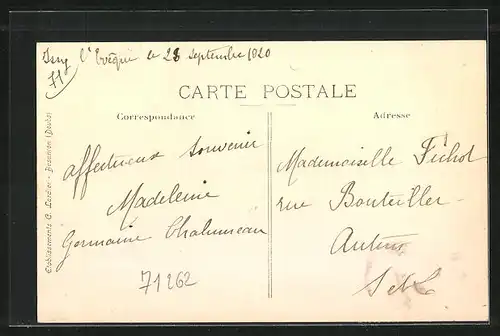 Issy l'Evêque le 28 septembre 1920
71
CARTE POSTALE
Correspondance
Adresse
Etablissements C. Lardier - Besançon (Doubs)
affectueux souvenir
Madeleine
Germaine
Mademoiselle Fichot
rue Bouteiller
Autun
S et L
71262